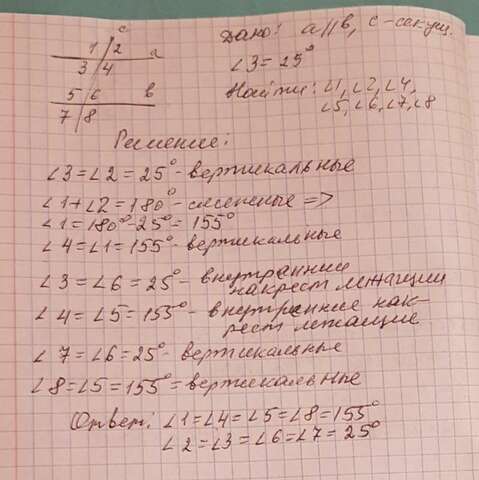 c
1 2 a
3 4
5 6 в
7 8
Дано: a//в, c-секущ.
∠3=25°
Найти: ∠1, ∠2, ∠4,
∠5, ∠6, ∠7, ∠8
Решение:
∠3=∠2=25°-вертикальные
∠1+∠2=180°-смежные =>
∠1=180°-25°=155°
∠4=∠1=155°-вертикальные
∠3=∠6=25°-внутранний
накрест лежащии
∠4=∠5=155°-внутренние нак-
рест лежащие
∠7=∠6=25°-вертикальные
∠8=∠5=155°=вертикальные
Ответ: ∠1=∠4=∠5=∠8=155°
∠2=∠3=∠6=∠7=25°